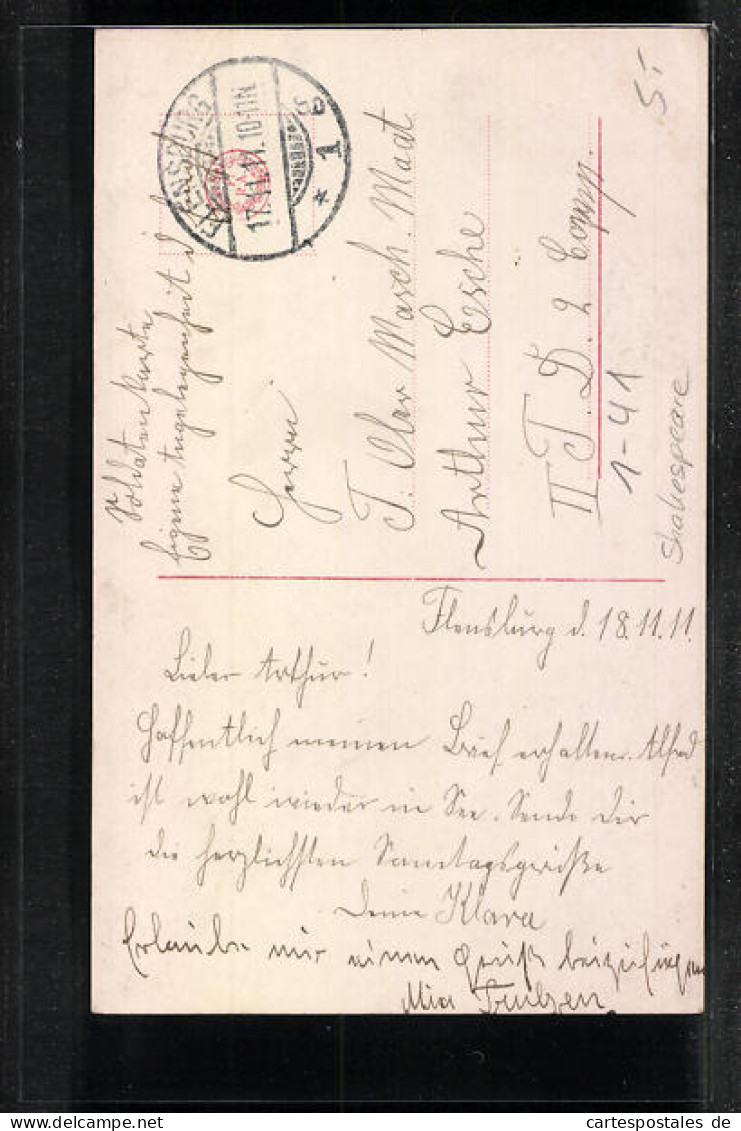 Soldatenkarte
Eigene Angelegenheit d. E.
FLENSBURG
17.11.11.10-11N
* 1 g
Herrn
T. Ober Masch. Maat
Arthur Esche
II T. D. 2 Comp.
1-41
5.-
Shakespeare
Flensburg d. 18.11.11.
Lieber Arthur!
Hoffentlich meinen Brief erhalten. Alfred
ist wohl wieder in See. Sende dir
die herzlichsten Sonntagsgrüße
Deine Klara
Erlaube mir einen Gruß beizufügen
Mia
cartespostales.de